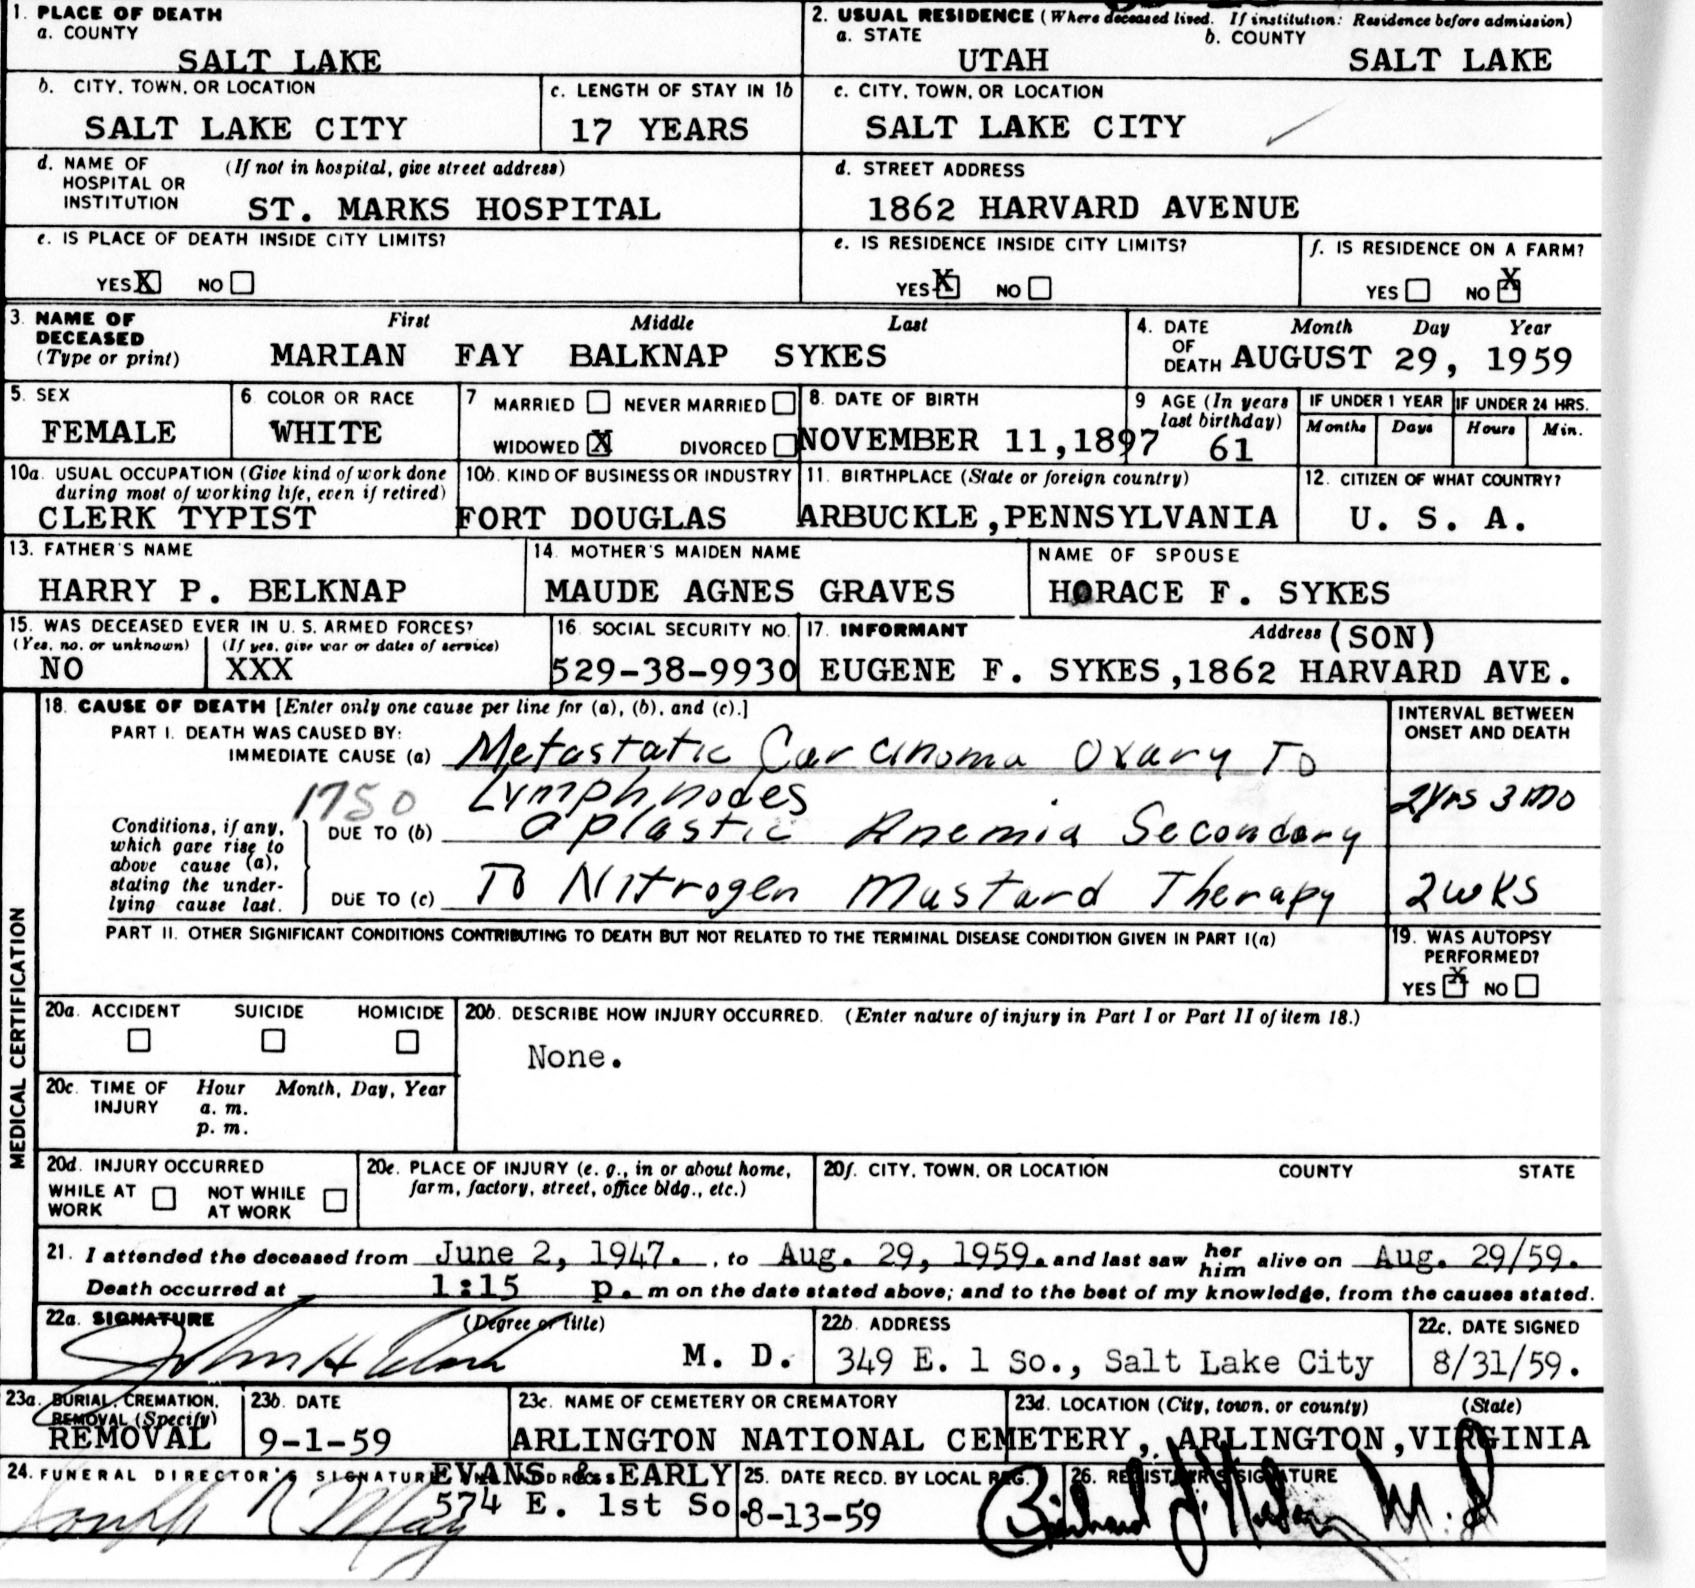 1. PLACE OF DEATH
a. COUNTY
SALT LAKE
2. USUAL RESIDENCE (Where deceased lived. If institution: Residence before admission)
a. STATE
UTAH
b. COUNTY
SALT LAKE
b. CITY, TOWN, OR LOCATION
SALT LAKE CITY
c. LENGTH OF STAY IN 1b
17 YEARS
c. CITY, TOWN, OR LOCATION
SALT LAKE CITY
d. NAME OF HOSPITAL OR INSTITUTION
(If not in hospital, give street address)
ST. MARKS HOSPITAL
d. STREET ADDRESS
1862 HARVARD AVENUE
e. IS PLACE OF DEATH INSIDE CITY LIMITS?
YES X NO
e. IS RESIDENCE INSIDE CITY LIMITS?
YES X NO
f. IS RESIDENCE ON A FARM?
YES NO X
3. NAME OF DECEASED (Type or print)
First Middle Last
MARIAN FAY BALKNAP SYKES
4. DATE OF DEATH
Month Day Year
AUGUST 29, 1959
5. SEX
FEMALE
6. COLOR OR RACE
WHITE
7 MARRIED NEVER MARRIED
WIDOWED X DIVORCED
8. DATE OF BIRTH
NOVEMBER 11,1897
9 AGE (In years last birthday)
61
IF UNDER 1 YEAR
Months Days
IF UNDER 24 HRS.
Hours Min.
10a. USUAL OCCUPATION (Give kind of work done during most of working life, even if retired)
CLERK TYPIST
10b. KIND OF BUSINESS OR INDUSTRY
FORT DOUGLAS
11. BIRTHPLACE (State or foreign country)
ARBUCKLE,PENNSYLVANIA
12. CITIZEN OF WHAT COUNTRY?
U. S. A.
13. FATHER'S NAME
HARRY P. BELKNAP
14. MOTHER'S MAIDEN NAME
MAUDE AGNES GRAVES
NAME OF SPOUSE
HORACE F. SYKES
15. WAS DECEASED EVER IN U. S. ARMED FORCES?
(Yes, no, or unknown) (If yes, give war or dates of service)
NO XXX
16. SOCIAL SECURITY NO.
529-38-9930
17. INFORMANT Address (SON)
EUGENE F. SYKES,1862 HARVARD AVE.
MEDICAL CERTIFICATION
18. CAUSE OF DEATH [Enter only one cause per line for (a), (b), and (c).]
INTERVAL BETWEEN ONSET AND DEATH
PART I. DEATH WAS CAUSED BY:
IMMEDIATE CAUSE (a) Metastatic Carcinoma Ovary To
1750 Lymph nodes 2yrs 3mo
Conditions, if any, which gave rise to above cause (a), stating the underlying cause last.
DUE TO (b) aplastic Anemia Secondary
DUE TO (c) To Nitrogen Mustard Therapy 2wks
PART II. OTHER SIGNIFICANT CONDITIONS CONTRIBUTING TO DEATH BUT NOT RELATED TO THE TERMINAL DISEASE CONDITION GIVEN IN PART I(a)
19. WAS AUTOPSY PERFORMED?
YES X NO
20a. ACCIDENT SUICIDE HOMICIDE
20b. DESCRIBE HOW INJURY OCCURRED. (Enter nature of injury in Part I or Part II of item 18.)
None.
20c. TIME OF INJURY
Hour Month, Day, Year
a. m.
p. m.
20d. INJURY OCCURRED
WHILE AT WORK NOT WHILE AT WORK
20e. PLACE OF INJURY (e. g., in or about home, farm, factory, street, office bldg., etc.)
20f. CITY, TOWN, OR LOCATION COUNTY STATE
21. I attended the deceased from June 2, 1947. , to Aug. 29, 1959. and last saw her him alive on Aug. 29/59.
Death occurred at 1:15 p. m on the date stated above; and to the best of my knowledge, from the causes stated.
22a. SIGNATURE (Degree or title)
John H Clark M. D.
22b. ADDRESS
349 E. 1 So., Salt Lake City
22c. DATE SIGNED
8/31/59.
23a. BURIAL, CREMATION, REMOVAL (Specify)
REMOVAL
23b. DATE
9-1-59
23c. NAME OF CEMETERY OR CREMATORY
ARLINGTON NATIONAL CEMETERY,
23d. LOCATION (City, town, or county) (State)
ARLINGTON,VIRGINIA
24. FUNERAL DIRECTOR'S SIGNATURE
EVANS & EARLY
574 E. 1st So.
25. DATE RECD. BY LOCAL REG.
8-13-59
26. REGISTRAR'S SIGNATURE
M.D